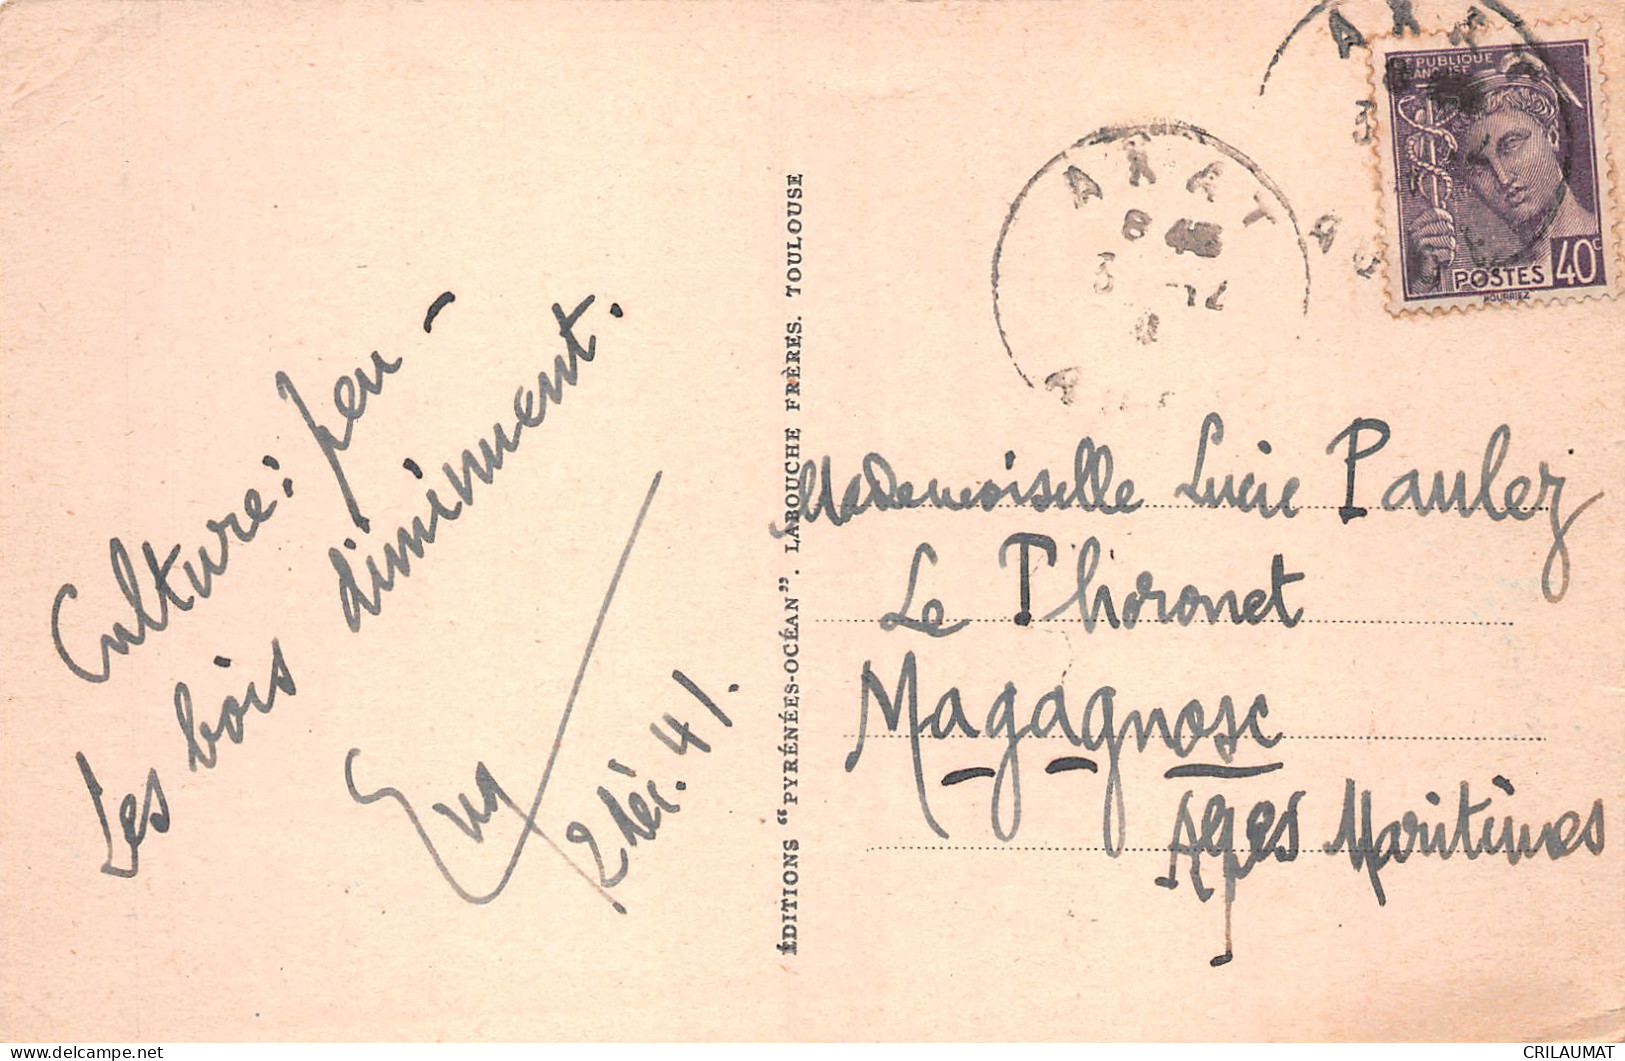 Culture: peu -
Les bois diminuent.
2 déc. 41.
ÉDITIONS "PYRÉNÉES-OCÉAN". LABOUCHE FRÈRES. TOULOUSE
AXAT
AXAT
8 45
3
AUDE
RÉPUBLIQUE
FRANÇAISE
POSTES 40c
POURRIEZ
Mademoiselle Lucie Paulez
Le Thoronet
Magagnosc
Alpes Maritimes
CRILAUMAT